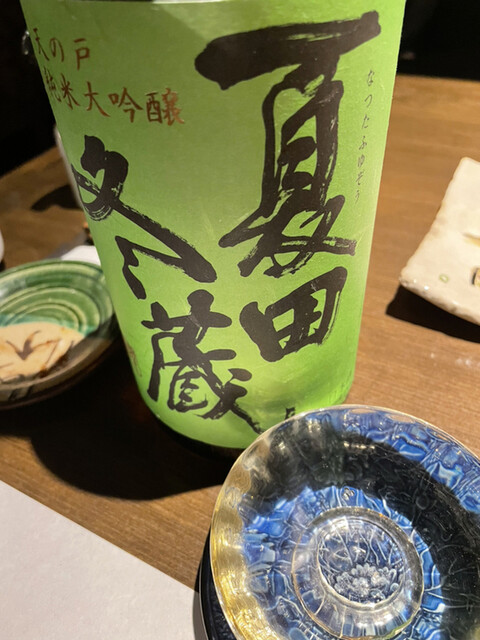 夏田
冬蔵
なつたふゆぞう
天の戸
純米大吟醸